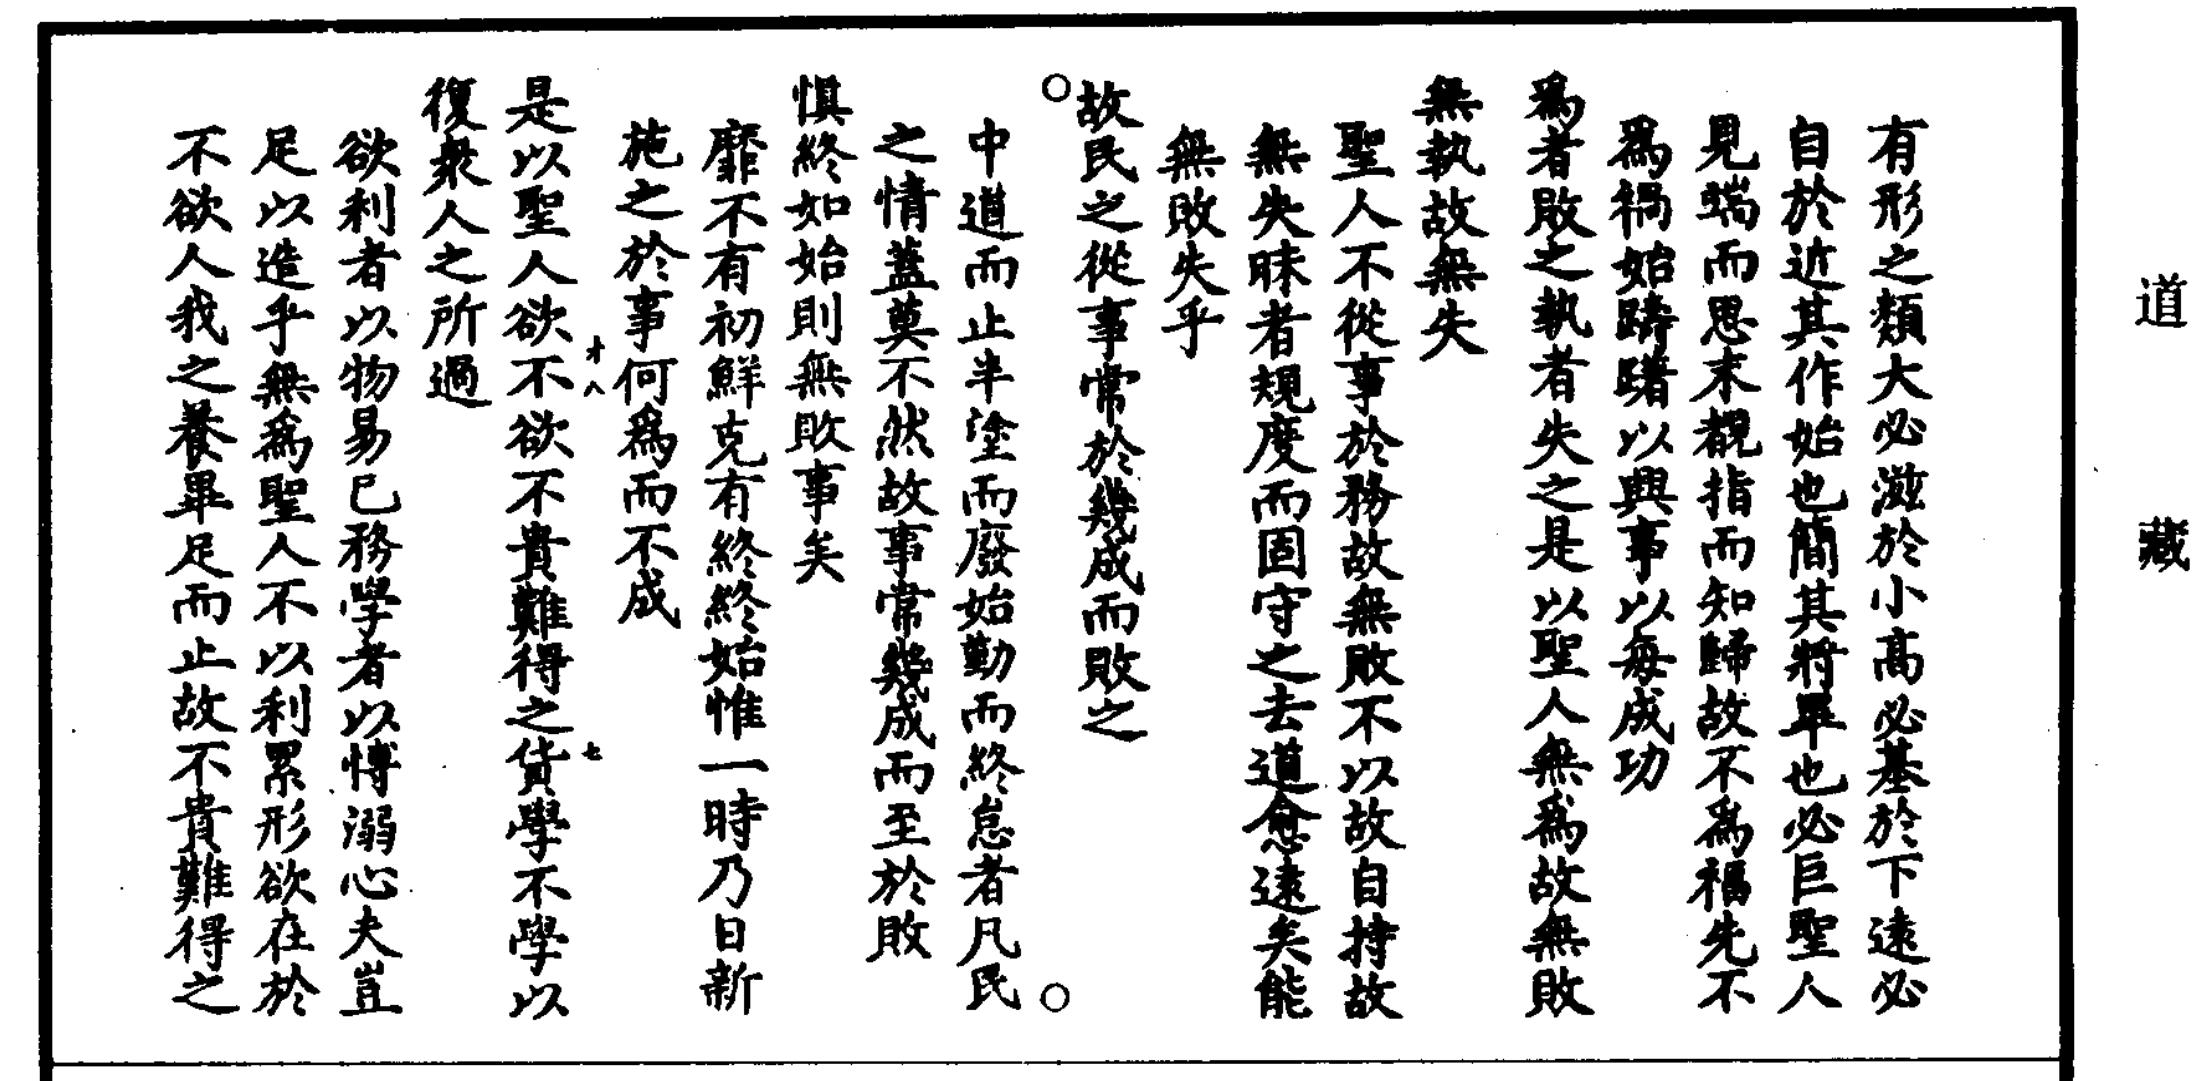 道藏
有形之類大必滋於小高必基於下遠必
自於近其作始也簡其將畢也必巨聖人
見端而思末覩指而知歸故不爲福先不
爲禍始躊躇以興事以每成功
爲者敗之執者失之是以聖人無爲故無敗
無執故無失
聖人不從事於務故無敗不以故自持故
無失昧者規度而固守之去道愈遠矣能
無敗失乎
○故民之從事常於幾成而敗之
中道而止半塗而廢始勤而終怠者凡民○
之情蓋莫不然故事常幾成而至於敗
愼終如始則無敗事矣
靡不有初鮮克有終終始惟一時乃日新
施之於事何爲而不成
是以聖人欲不欲不貴難得之貨學不學以
才八
七
復衆人之所過
欲利者以物易己務學者以博溺心夫豈
足以造乎無爲聖人不以利累形欲在於
不欲人我之養畢足而止故不貴難得之